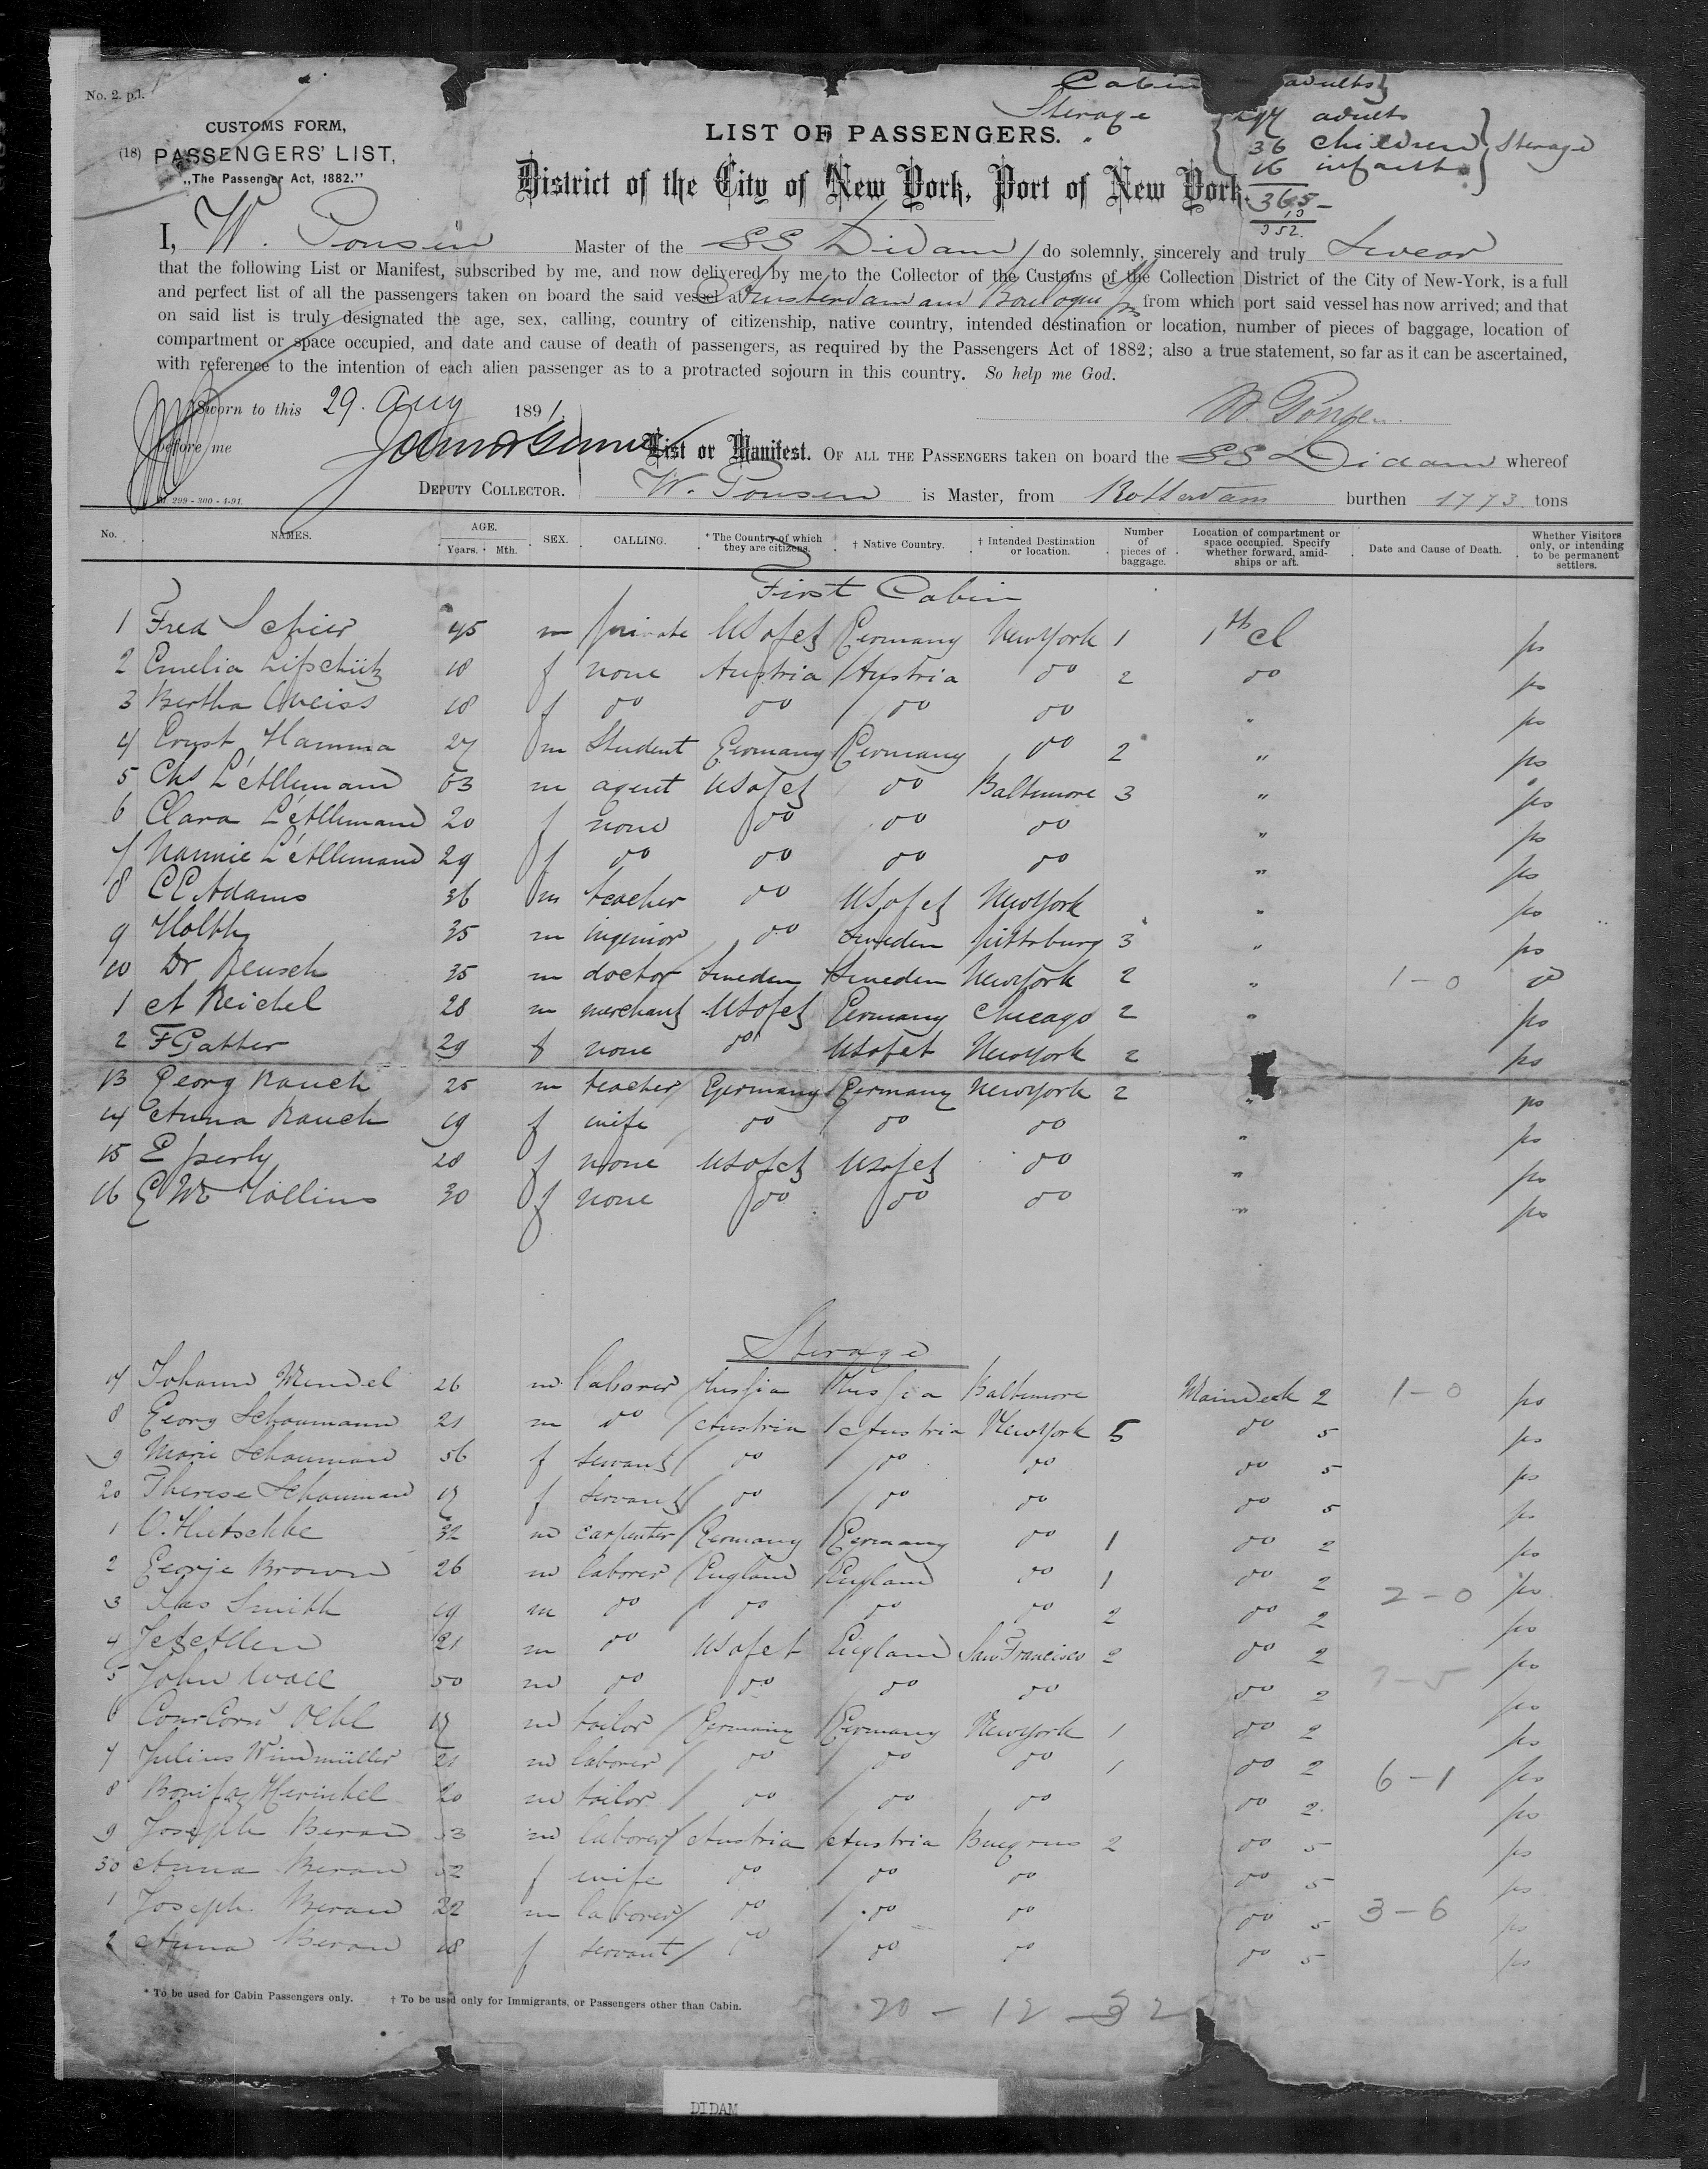 No. 2. p.l.
Cabin adults
Sterage
adults
36 children
Sterage
16 infants
365
13
352.
CUSTOMS FORM,
(18) PASSENGERS' LIST,
„The Passenger Act, 1882.”
LIST OF PASSENGERS.
District of the City of New York, Port of New York.
I, W. Ponsen Master of the SS Didam do solemnly, sincerely and truly Swear
that the following List or Manifest, subscribed by me, and now delivered by me to the Collector of the Customs of the Collection District of the City of New-York, is a full
and perfect list of all the passengers taken on board the said vessel at Amsterdam and Boulogne from which port said vessel has now arrived; and that
on said list is truly designated the age, sex, calling, country of citizenship, native country, intended destination or location, number of pieces of baggage, location of
compartment or space occupied, and date and cause of death of passengers, as required by the Passengers Act of 1882; also a true statement, so far as it can be ascertained,
with reference to the intention of each alien passenger as to a protracted sojourn in this country. So help me God.
Sworn to this 29. Aug 1891.
W. Ponsen
before me
List or Manifest. OF ALL THE PASSENGERS taken on board the SS Didam whereof
DEPUTY COLLECTOR. W. Ponsen is Master, from Rotterdam burthen 1773 tons
299 - 300 - 4-91.
No. NAMES. AGE. Years. Mth. SEX. CALLING. * The Country of which they are citizens. † Native Country. † Intended Destination or location. Number of pieces of baggage. Location of compartment or space occupied. Specify whether forward, amid-ships or aft. Date and Cause of Death. Whether Visitors only, or intending to be permanent settlers.
First Cabin
1 Fred Schier 45 m private USofA Germany New York 1 1th cl ps
2 Emelia Lipschütz 18 f none Austria Austria do 2 do ps
3 Bertha Weiss 18 f do do do do " ps
4 Ernst Hamma 27 m Student Germany Germany do 2 " ps
5 Chs L'Allemand 63 m agent USofA do Baltimore 3 " ps
6 Clara L'Allemand 20 f none do do do " ps
7 Nannie L'Allemand 29 f do do do do " ps
8 CC Adams 36 m teacher do USofA New York " ps
9 Holth 35 m ingenior do Sweden pittsburg 3 " ps
10 Dr Reusch 35 m doctor Sweden Sweden New York 2 " 1-0
1 A Reichel 28 m merchant USofA Germany Chicago 2 " ps
2 F Gatter 29 f none do USofA New York 2 ps
13 Georg Rauch 25 m teacher Germany Germany New York 2 " ps
14 Anna Rauch 19 f wife do do do " ps
15 E perly 28 f none USofA USofA do " ps
16 Collins 30 f none do do do " ps
Sterage
17 Johann Mendel 26 m laborer Russia Russia Baltimore Maindeck 2 1-0 ps
8 Georg Schaumann 21 m do Austria Austria New York 5 do 5 ps
9 Marie Schauman 56 f servant do do do do 5 ps
20 Therese Schauman 17 f servant do do do do 5 ps
1 O. Hutschke 32 m carpenter Germany Germany do 1 do 2 ps
2 George Brown 26 m laborer England England do 1 do 2 ps
3 Smith 19 m do do do do 2 do 2 2-0 ps
4 Allen 21 m do USofA England San Francisco 2 do 2 ps
5 John Wall 50 m do do do do do 2 7-5 ps
6 Oehl 17 m tailor Germany Germany New York 1 do 2 ps
7 Julius Windmüller 21 m laborer do do do 1 do 2 6-1 ps
8 Bonifaz Herinkel 20 m tailor do do do do 2 ps
9 Joseph Beran 53 m laborer Austria Austria 2 do 5 ps
30 Anna Beran 52 f wife do do do do 5 ps
1 Joseph Beran 22 m laborer do do do do 5 3-6 ps
2 Anna Beran 18 f servant do do do do 5 ps
* To be used for Cabin Passengers only. † To be used only for Immigrants, or Passengers other than Cabin.
20 - 12 - 32
DIDAM